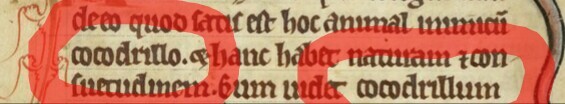 deo quod satis est hoc animal inimicū
cocodrillo. & hanc habet naturam ⁊ con
suetudinem. Cum uidet cocodrillum